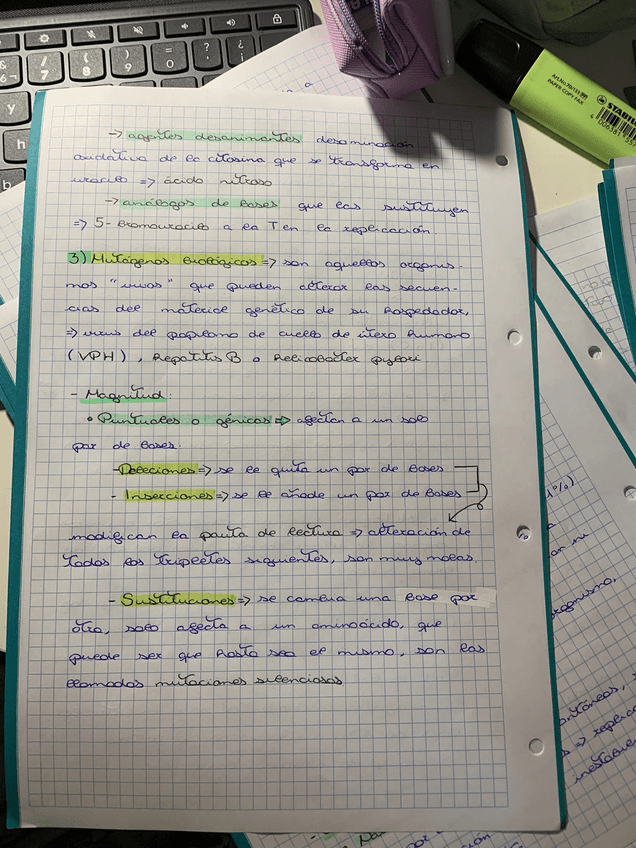 -> agentes desaminantes desaminación
oxidativa de la citosina que se transforma en
uracilo => ácido nitroso
-> análogos de bases que las sustituyen
=> 5-Bromouracilo a la T en la replicación.
3) Mutágenos biológicos => son aquellos organis-
mos "vivos" que pueden alterar las secuen-
cias del material genético de su hospedador,
=> virus del papiloma de cuello de útero humano
(VPH), hepatitis B o helicobácter pylori
- Magnitud:
• Puntuales o génicas => afectan a un solo
par de bases.
- Deleciones => se le quita un par de bases
- Inserciones => se le añade un par de bases
modifican la pauta de lectura => alteración de
todos los tripletes siguientes, son muy malas.
- Sustituciones => se cambia una base por
otra, solo afecta a un aminoácido, que
puede ser que hasta sea el mismo, son las
llamadas mutaciones silenciosas
STABILO
Art.No.70/133
PAPER COPY FAX
1%)
organismo,
ontáneas, s
=> replica
inestable